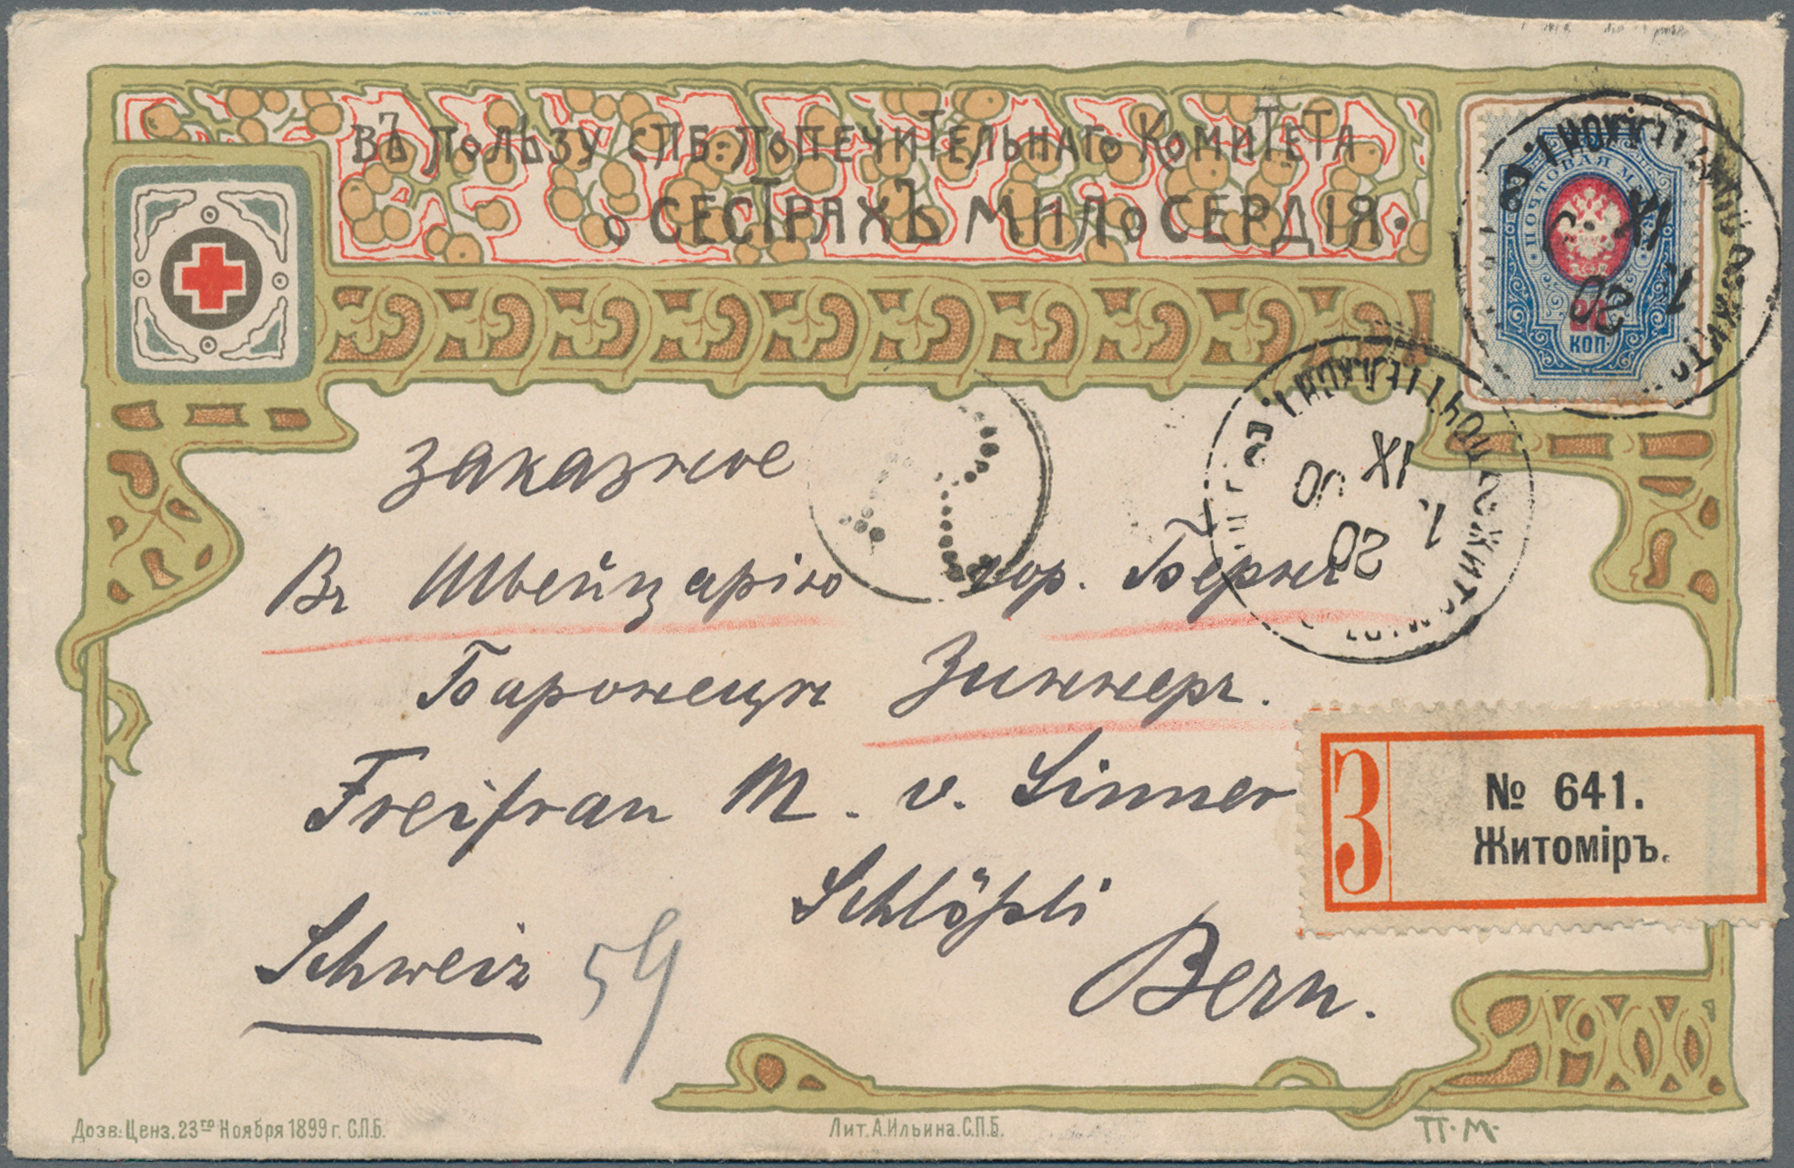 ВЪ ПОЛЬЗУ СПБ ПОПЕЧИТЕЛЬНАГО КОМИТЕТА
О СЕСТРАХЪ МИЛОСЕРДІЯ.
ПОЧТОВАЯ
20
КОП.
1
XI
20
1.
XI
00
20
заказное
Въ Швейцарію гор. Бернъ
Баронецы Зиннеръ.
Freifrau M. v. Sinner
Schlößli
Schweiz
Bern.
59
З
№ 641.
Житоміръ.
1900
Дозв. Ценз. 23го Ноября 1899 г. С.П.Б.
Лит. А. Ильина. С.П.Б.
П. М.